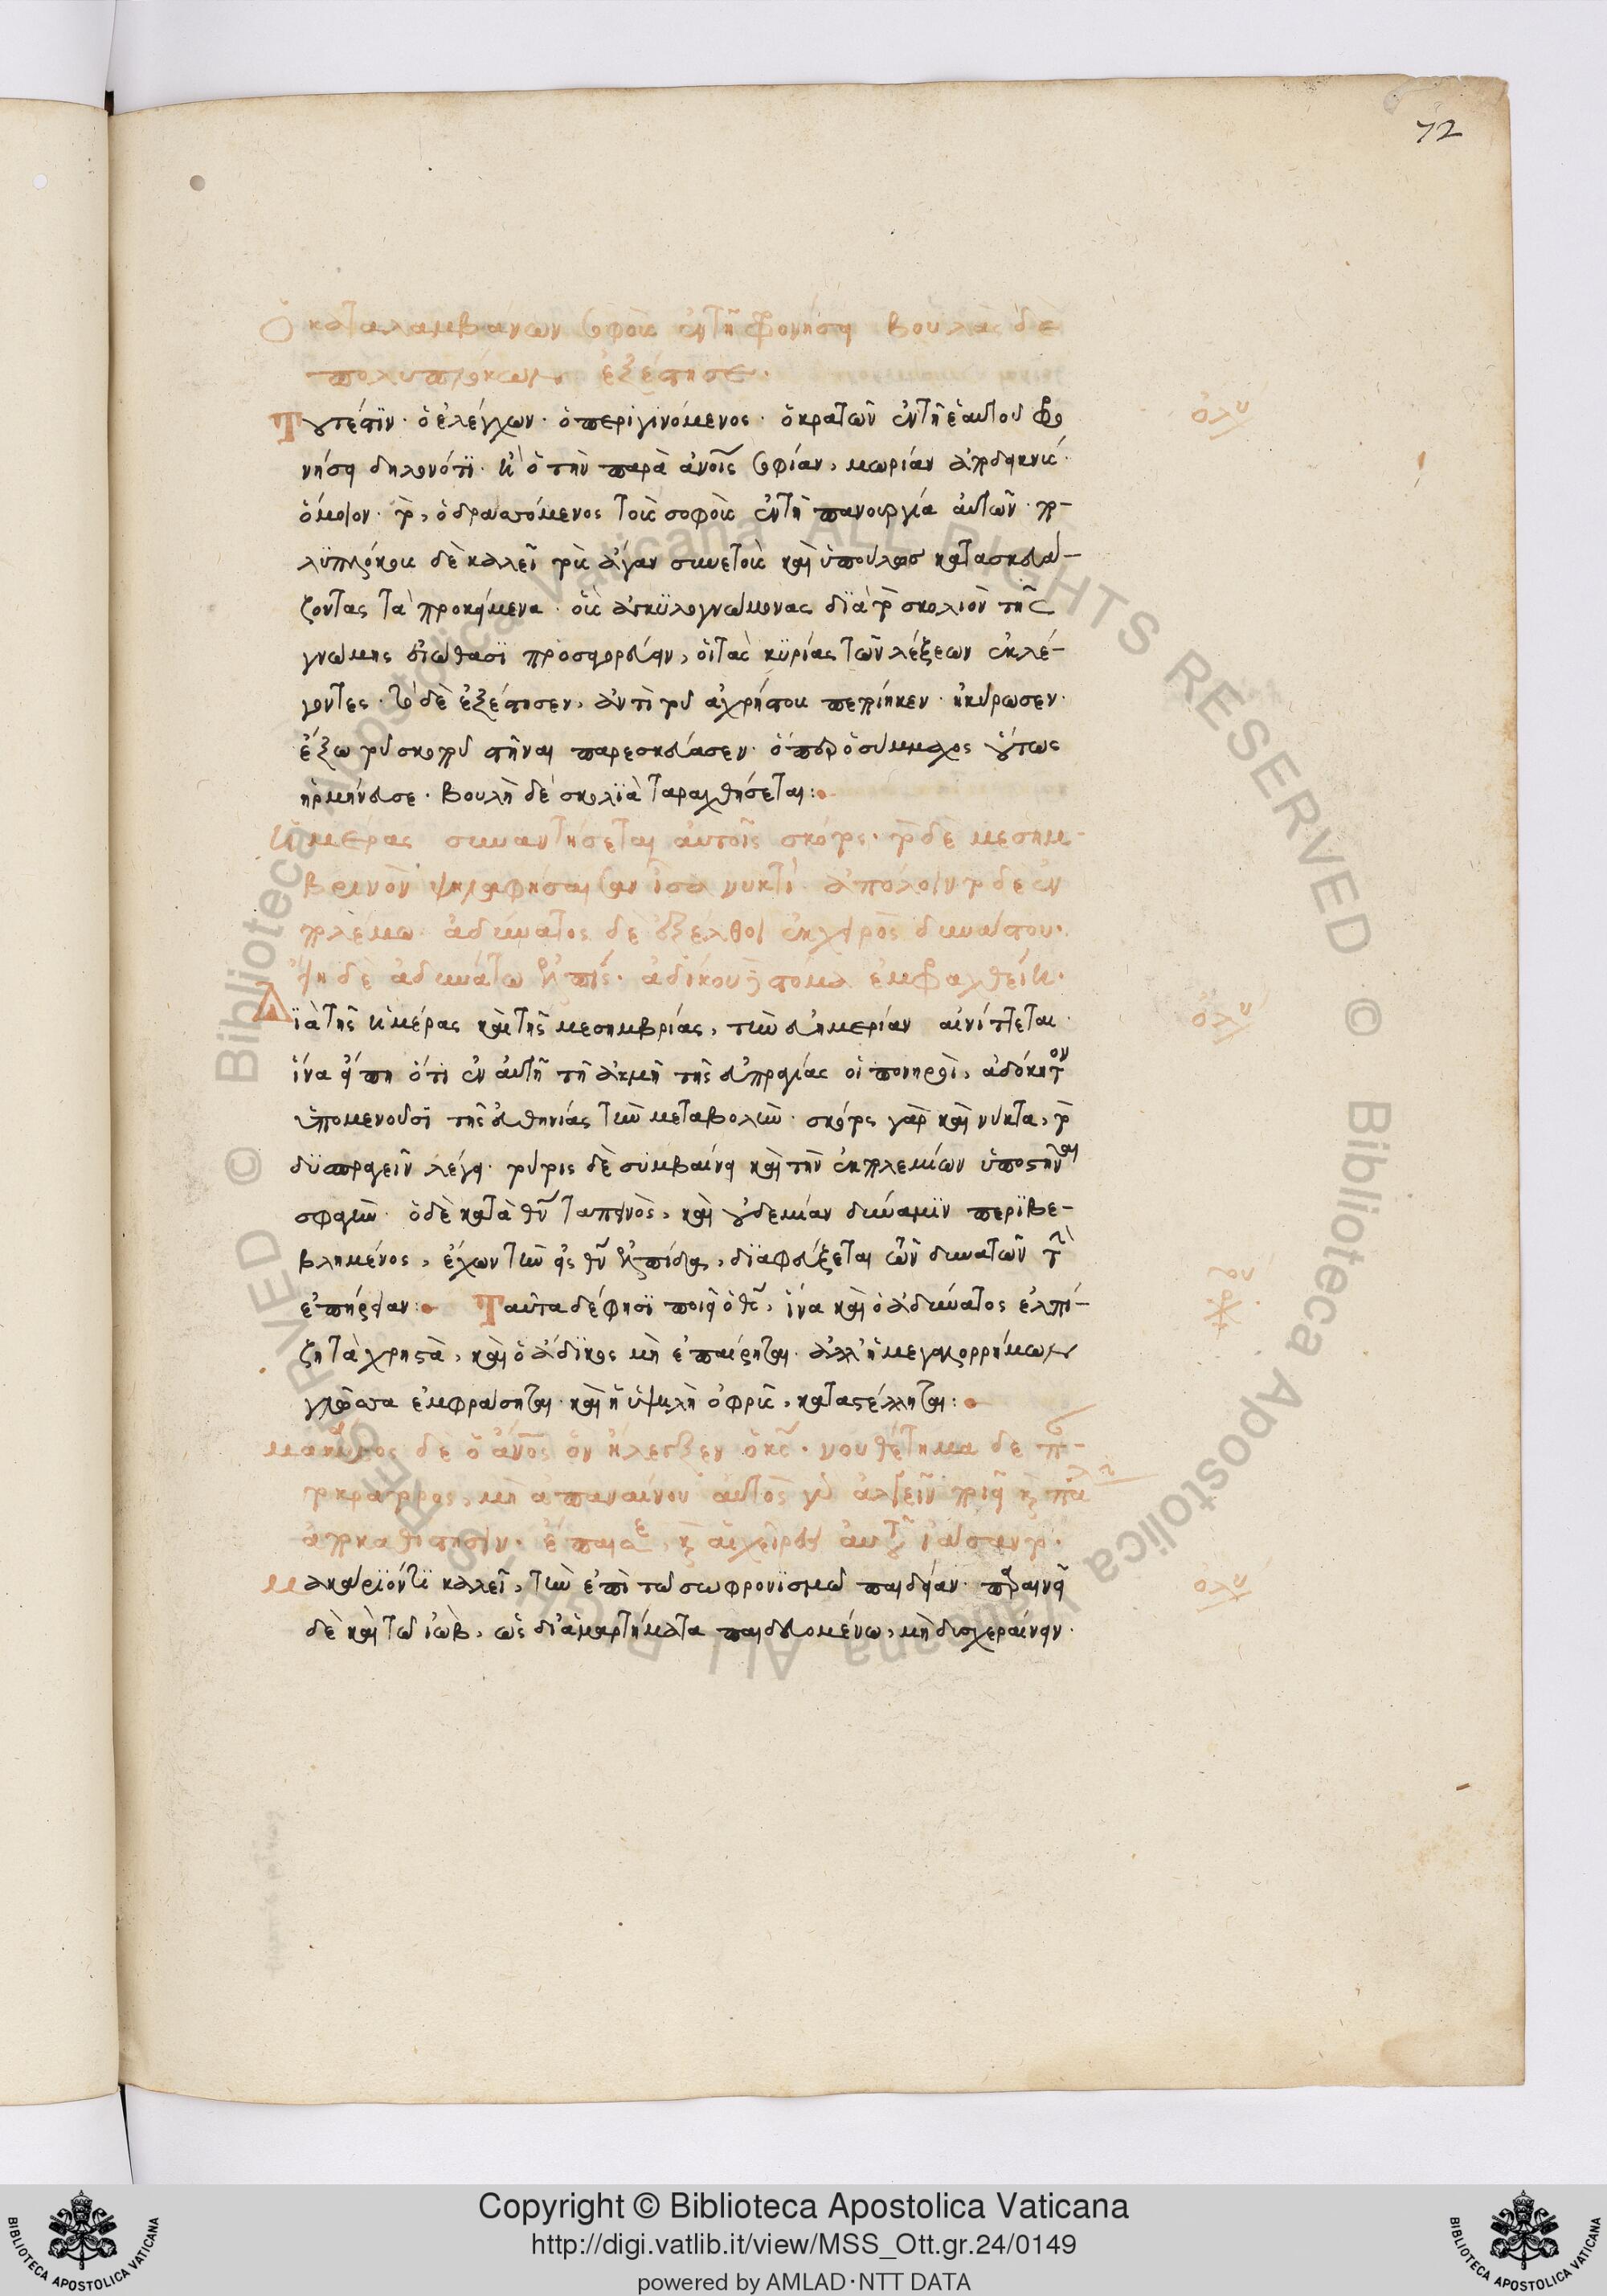 72
Ὁ καταλαμβάνων σοφοὺς ἐν τῇ φρονήσει βουλὰς δὲ
πολυπλόκων ἐξέστησε.
Τουτέστιν· ὁ ἐλέγχων· ὁ περιγινόμενος· ὁ κρατῶν ἐν τῇ ἑαυτοῦ φρο
νήσει δηλονότι· ἢ ὁ τὴν παρὰ ἀνοις σοφίαν, μωρίαν ἀποδεικνὺς·
ὅμοιον· τὸ, ὁ δρασσόμενος τοὺς σοφοὺς ἐν τῇ πανουργία αὐτῶν· πο-
λυπλόκους δὲ καλεῖ τοὺς ἄγαν συνετοὺς καὶ ὑπούλως κατασκευά-
ζοντας τὰ προκείμενα· οὓς ἀγκυλογνώμονας διὰ τὸ σκολιὸν τῆς
γνώμης εἰώθασι προσαγορεύειν, οἱ τὰς κυρίας τῶν λέξεων ἐκλέ-
γοντες· τὸ δὲ ἐξέστησεν, ἀντὶ τοῦ ἀχρήστους πεποίηκεν· ἠκύρωσεν·
ἔξω τοῦ σκοποῦ στῆναι παρεσκεύασεν· ὅπερ ὁ σύμμαχος οὕτως
ἡρμήνευσε· βουλὴ δὲ σκολιὰ ταραχθήσεται:
Ἡμέρας συναντήσεται αὐτοῖς σκότος· τὸ δὲ μεσημ-
βρινὸν ψηλαφήσαισαν ἴσα νυκτί· ἀπόλοιντο δὲ ἐν
πολέμω· ἀδύνατος δὲ ἐξέλθοι ἐκ χειρὸς δυνάστου·
εἴη δὲ ἀδυνάτω ἐλπίς· ἀδίκου δὲ στόμα ἐμφραχθείη·
Διὰ τῆς ἡμέρας καὶ τῆς μεσημβρίας, τὴν εὐημερίαν αἰνίττεται·
ἵνα εἴπη ὅτι ἐν αὐτῇ τῇ ἀκμῇ τῆς εὐπραγίας οἱ πονηροὶ, ἀδόκητον
ὑπομενοῦσι τῆς εὐθηνίας τὴν μεταβολήν· σκότος γὰρ καὶ νύκτα, τὸ
δυσπραγεῖν λέγει· τούτοις δὲ συμβαίνει καὶ τὴν ἐκ πολεμίων ὑποστῆναι
σφαγήν· ὁ δὲ κατὰ θν ταπεινὸς, καὶ οὐδεμίαν δύναμιν περιβε-
βλημένος, ἔχων τὴν εἰς θν ἐλπίδα, διαφεύξεται τῶν δυνατῶν τὴν
ἐπήρειαν: Ταῦτα δέ φησι ποιεῖ ὁ θς, ἵνα καὶ ὁ ἀδύνατος ἐλπί-
ζη τὰ χρηστὰ, καὶ ὁ ἄδικος μὴ ἐπαίρηται· ἀλλ' ἡ μεγαλορρήμων
γλῶσσα ἐμφράσηται· καὶ ἡ ὑψηλὴ ὀφρὺς, καταστέλληται:
μακάριος δὲ ὁ ἄνος ὃν ἤλεγξεν ὁ κς· νουθέτημα δὲ πα-
τοκράτορος, μὴ ἀπαναίνου· αὐτὸς γὰρ ἀλγεῖν ποιεῖ καὶ πάλιν
ἀποκαθίστησιν· ἔπαισε, καὶ αἱ χεῖρες αὐτοῦ ἰάσαντο·
μακάριόν τι καλεῖ, τὴν ἐπὶ τῶ σωφρονισμῶ παιδείαν· παραινεῖ
δὲ καὶ τῶ ἰὼβ, ὡς δι' ἁμαρτήματα παιδευομένω, μὴ δυσχεραίνειν·
ὀλυ
ὀλυ
ὀλυ
Copyright © Biblioteca Apostolica Vaticana
http://digi.vatlib.it/view/MSS_Ott.gr.24/0149
powered by AMLAD·NTT DATA
BIBLIOTECA APOSTOLICA VATICANA
BIBLIOTECA APOSTOLICA VATICANA
© Biblioteca Apostolica Vaticana ALL RIGHTS RESERVED © Biblioteca Apostolica Vaticana ALL RIGHTS RESERVED